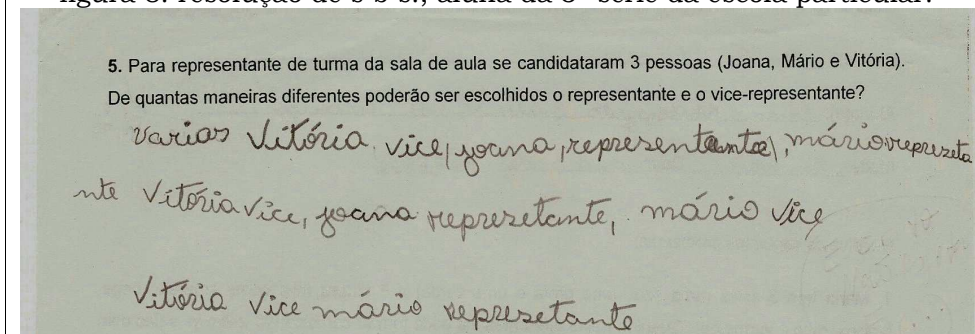 figura 8: resolução de s b s., aluna da 8ª série da escola particular.
5. Para representante de turma da sala de aula se candidataram 3 pessoas (Joana, Mário e Vitória).
De quantas maneiras diferentes poderão ser escolhidos o representante e o vice-representante?
varias Vitória vice, joana, representante, máriorepreseta
nte Vitória vice, joana represetante, mário vice
Vitória vice mário represetante